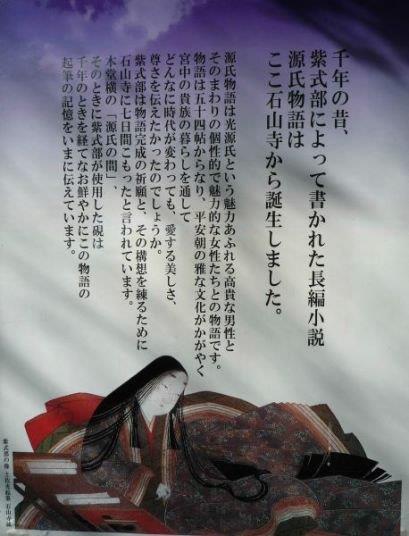 千年の昔、
紫式部によって書かれた長編小説
源氏物語は
ここ石山寺から誕生しました。
源氏物語は光源氏という魅力あふれる高貴な男性と
そのまわりの個性的で魅力的な女性たちとの物語です。
物語は五十四帖からなり、平安朝の雅な文化がかがやく
宮中の貴族の暮らしを通して
どんなに時代が変わっても、愛する美しさ、
尊さを伝えたかったのでしょうか。
紫式部は物語完成の祈願と、その構想を練るために
石山寺に七日間こもったと言われています。
本堂横の「源氏の間」、
そのときに紫式部が使用した硯は
千年のときを経てなお鮮やかにこの物語の
起筆の記憶をいまに伝えています。
紫式部の像 土佐光起筆 石山寺蔵